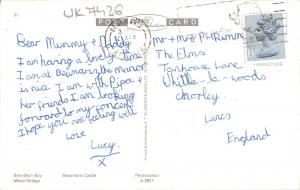 UK 7436
81
POST CARD
Dear Mummy + Daddy
I am having a lovely time
I am at Beumaris the manor
is nice. I am with Pippa +
her friends I am looking
forward to my concert
I hope you are feeling well
love
Lucy.
X
Mr + Mrs P H Rimmer
The Elms
Tanhouse Lane
Whittle-le-woods
Chorley.
Lancs
England
Benllech Bay
Menai Bridge
Beaumaris Castle
Photocolour